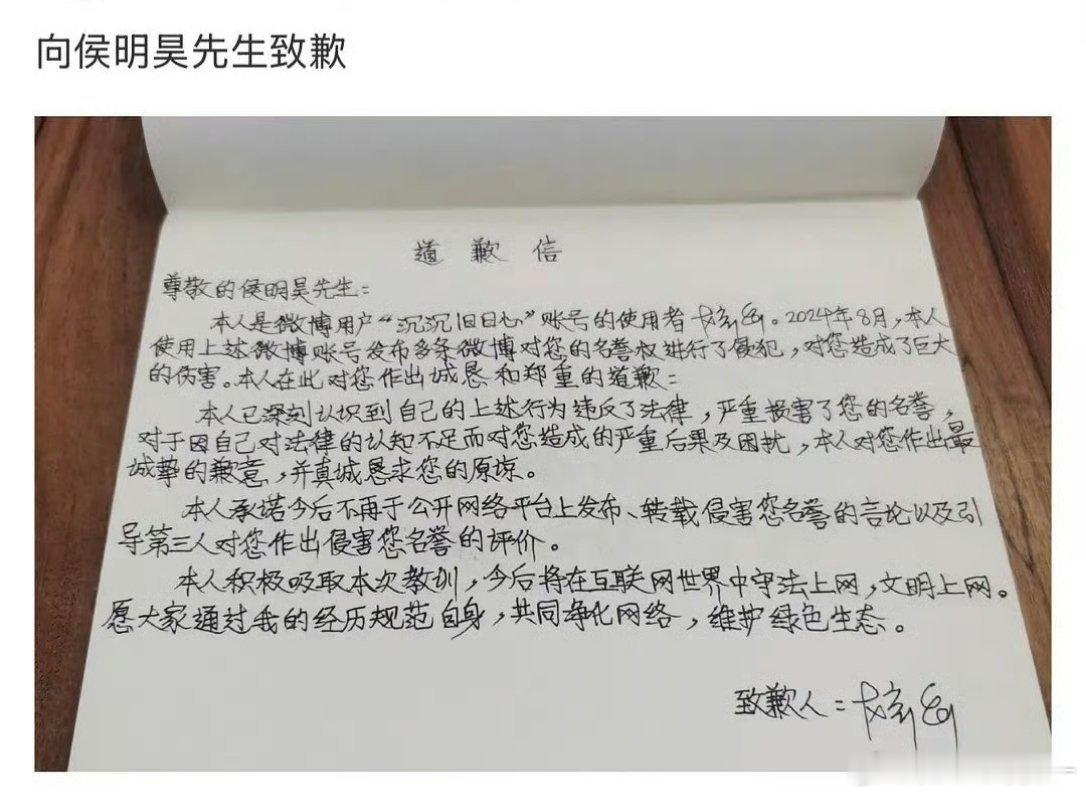 向侯明昊先生致歉
道 歉 信
尊敬的侯明昊先生：
本人是微博用户“沉沉旧日心”账号的使用者 。2024年8月，本人
使用上述微博账号发布多条微博对您的名誉权进行了侵犯，对您造成了巨大
的伤害。本人在此对您作出诚恳和郑重的道歉：
本人已深刻认识到自己的上述行为违反了法律，严重损害了您的名誉，
对于因自己对法律的认知不足而对您造成的严重后果及困扰，本人对您作出最
诚挚的歉意，并真诚恳求您的原谅。
本人承诺今后不再于公开网络平台上发布、转载侵害您名誉的言论以及引
导第三人对您作出侵害您名誉的评价。
本人积极吸取本次教训，今后将在互联网世界中守法上网，文明上网。
愿大家通过我的经历规范自身，共同净化网络，维护绿色生态。
致歉人：